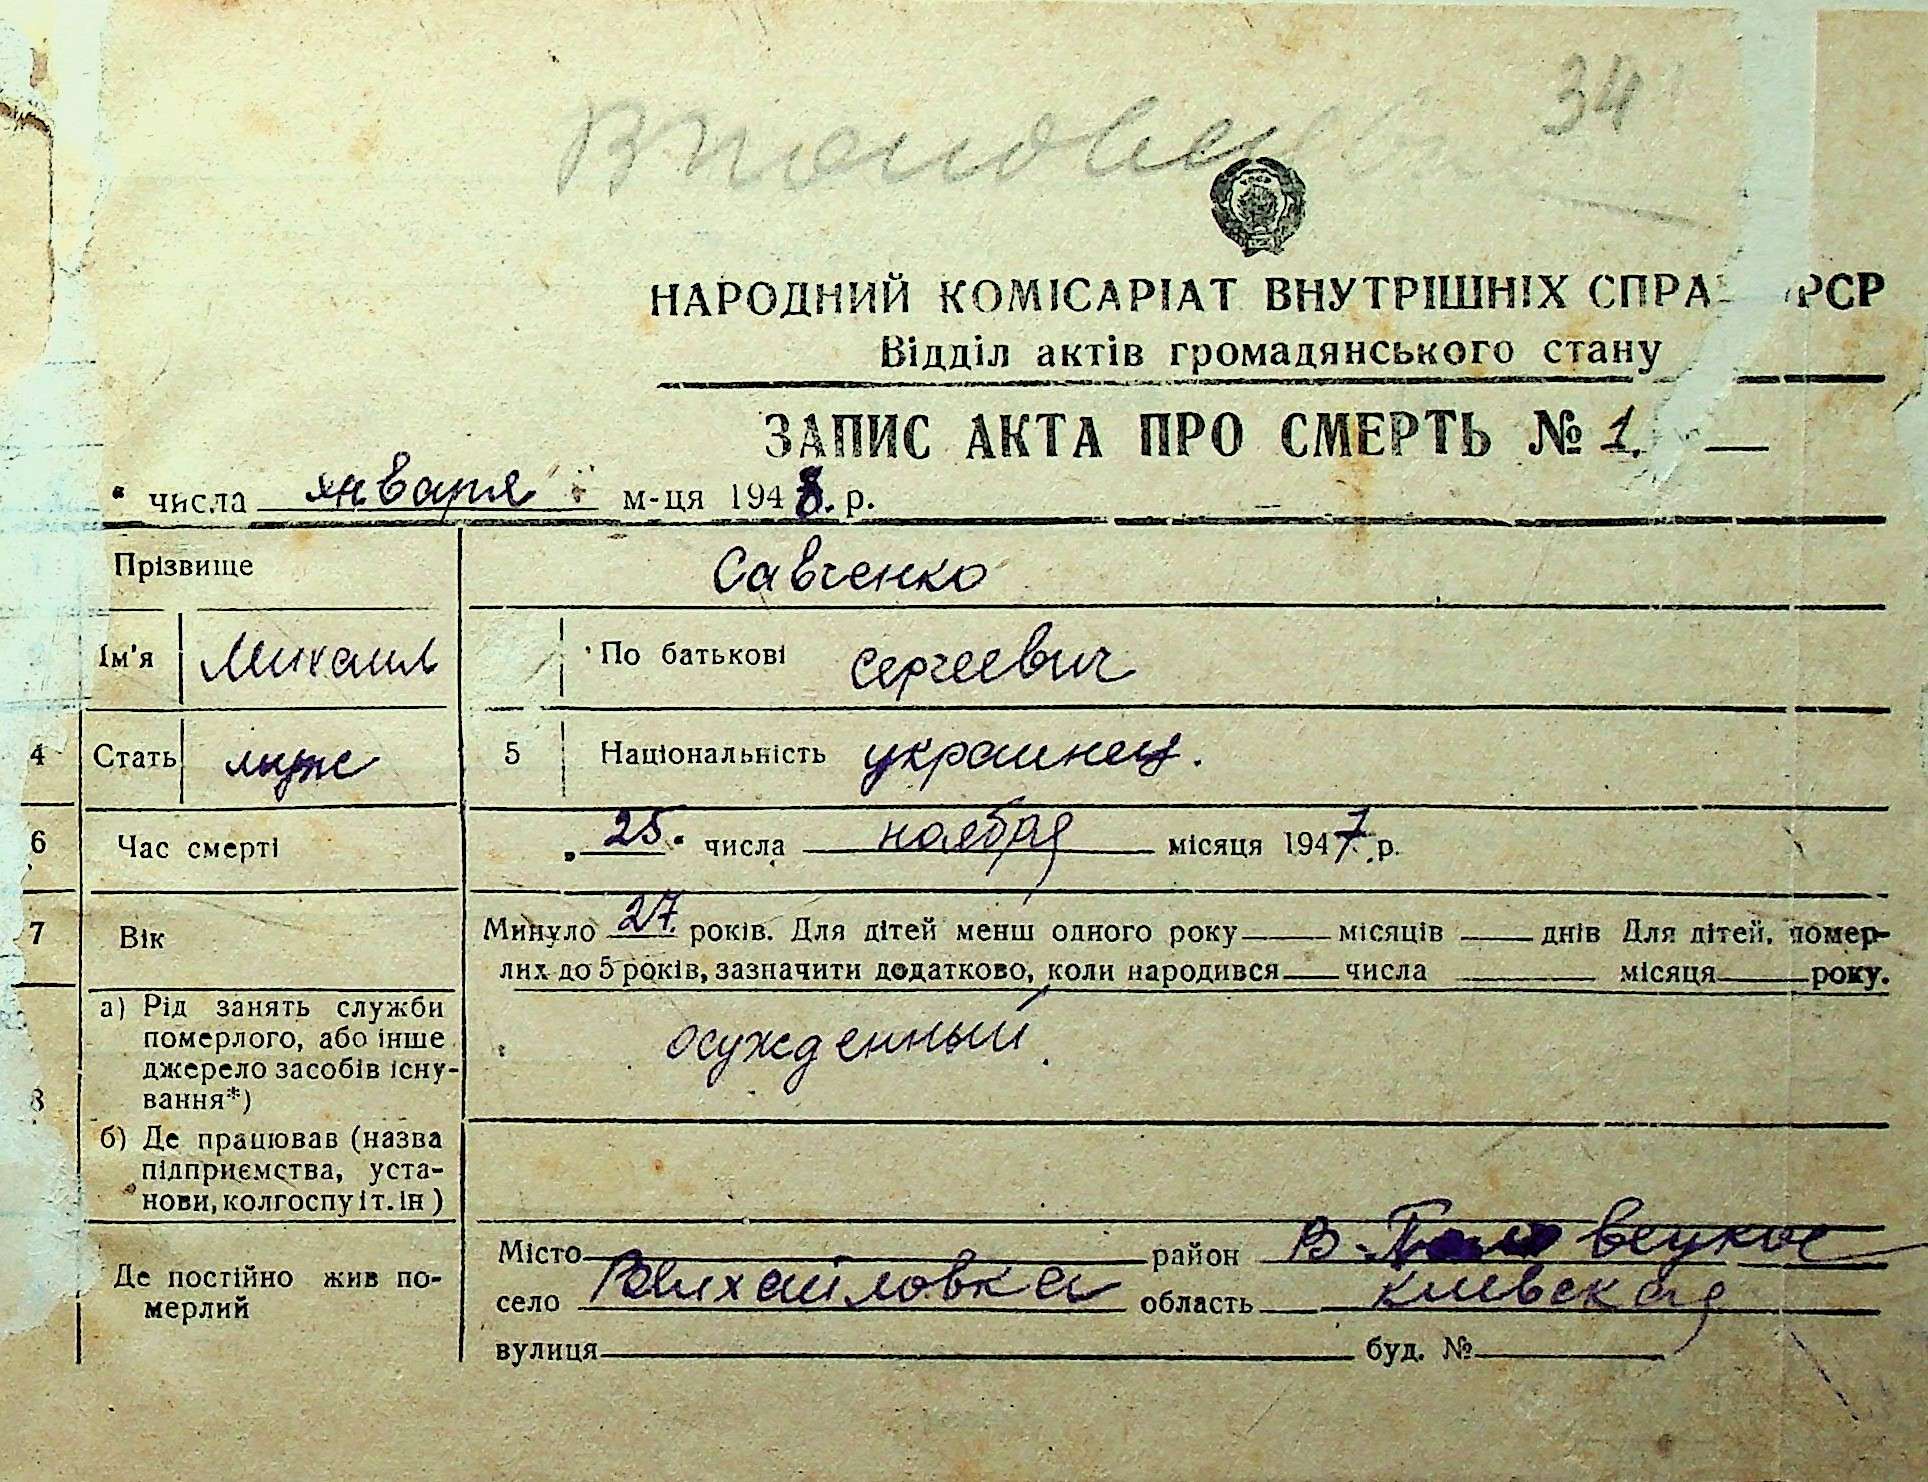 34
НАРОДНИЙ КОМІСАРІАТ ВНУТРІШНІХ СПРА РСР
Відділ актів громадянського стану
ЗАПИС АКТА ПРО СМЕРТЬ № 1.
" числа января м-ця 1948. р.
Прізвище Савченко
Ім'я Михаил По батькові Сергеевич
4 Стать муж 5 Національність украинец.
6 Час смерті „25" числа ноября місяця 1947 р.
7 Вік Минуло 27. років. Для дітей менш одного року місяців днів Для дітей, помер-
лих до 5 років, зазначити додатково, коли народився числа місяця року.
8 а) Рід занять служби померлого, або інше джерело засобів існу-вання*) осужденный.
б) Де працював (назва підприємства, уста-нови, колгоспу і т. ін)
Де постійно жив по-мерлий
Місто район
село область киевская
вулиця буд. №